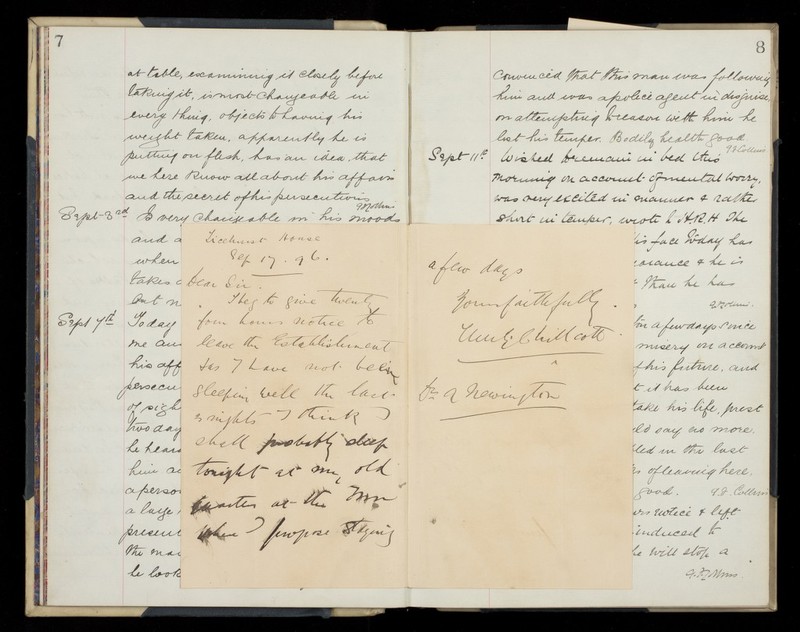 7
at table, examining it closely before
taking it, is most changeable in
every thing, objects to having his
weight taken, apparently he is
putting on flesh, has an idea that
we here know all about his affairs
and the secret of his persecutions
Sept 3rd Is very changeable in his moods
and a
when
takes
but n
Sept 7th Today
me an
his aff
persecu
of sigh
two day
he hear
him
a perso
a large
present
the ma
he look
Ticehurst House
Sep 17. 96.
Dear Sir.
I beg to give twenty
four hours notice to
leave the Establishment
As I have not been
sleeping well the last
nights I think I
shall probably sleep
tonight at my old
quarters at the Inn
where I propose staying
a few days
Yours faithfully.
Chillcott
To Dr Newington
8
convinced that this man was following
him and was a police agent in disguise,
on attempting to reason with him he
lost his temper. Bodily health good
Collins
Sept 11th Wished to remain in bed this
morning on account of mental worry,
was very excited in manner & rather
short in temper, wrote to H.R.H The
his face today has
& he is
than he has
a few days since
misery on account
f his future, and
t it has been
take his life, most
ld say no more.
led in the last
of leaving here.
good. Collins
notice & left
induced to
he will stop a